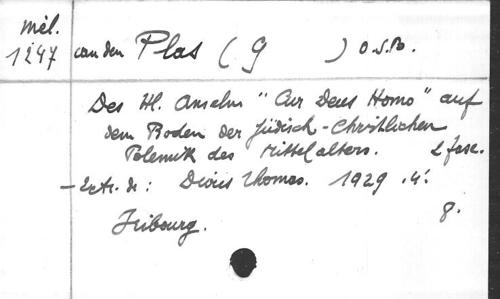 Mél.
1247
van den Plas (G ) O.S.B.
Des Hl. Anselm "Cur Deus Homo" auf
dem Boden der Jüdisch-Christlichen
Polemik des Mittelalters. 2 fasc.
- Extr. de : Divus Thomas. 1929. 4.
Fribourg. 8.